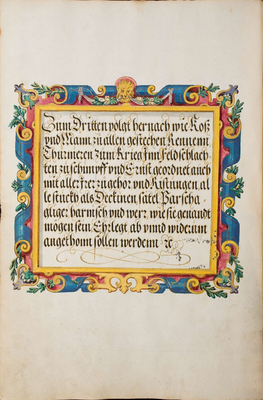 Zum Dritten volgt hernach wie Roß
vnd Mann zu allen gestechen Rennenn
Thurnieren zum Krieg Inn Feldschlach
ten zu schimpff vnd Ernst geordnet auch
mit aller zugehor vnd Rüstungen al
le stuckh als Deckinen satel Parscha
harnisch vnd wer wie sie genandt
mögen sein Ehrlegt ab vnnd widerum
angethonn sollen werdenn